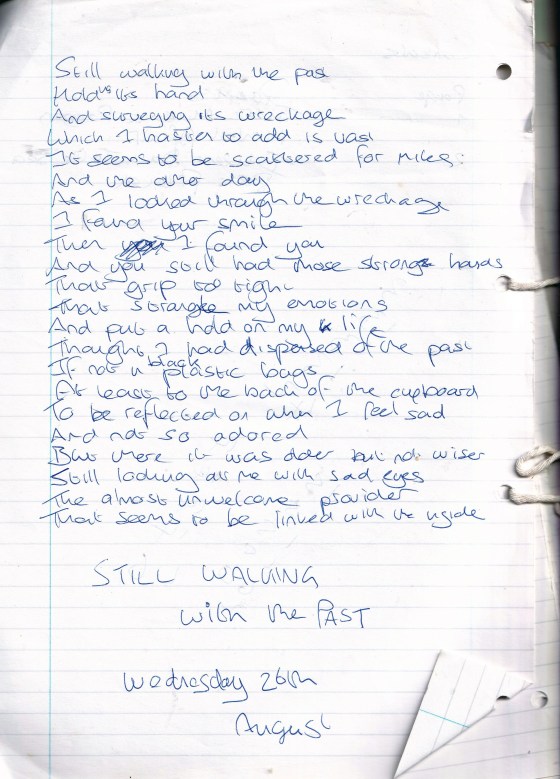 Still walking with the past
Holds its hand
And surveying its wreckage
Which I hasten to add is vast
It seems to be scattered for miles:
And the other day
As I looked through the wreckage
I found your smile
Then I found you
And you still had those strong hands
That grip too tight
That strangle my emotions
And put a hold on my life
Thought I had disposed of the past
If not in black plastic bags
At least to the back of the cupboard
To be reflected on when I feel sad
And not so adored
But there it was older but not wiser
Still looking at me with sad eyes
The almost unwelcome provider
That seems to be linked with the inside
STILL WALKING
with the PAST
Wednesday 26th
August